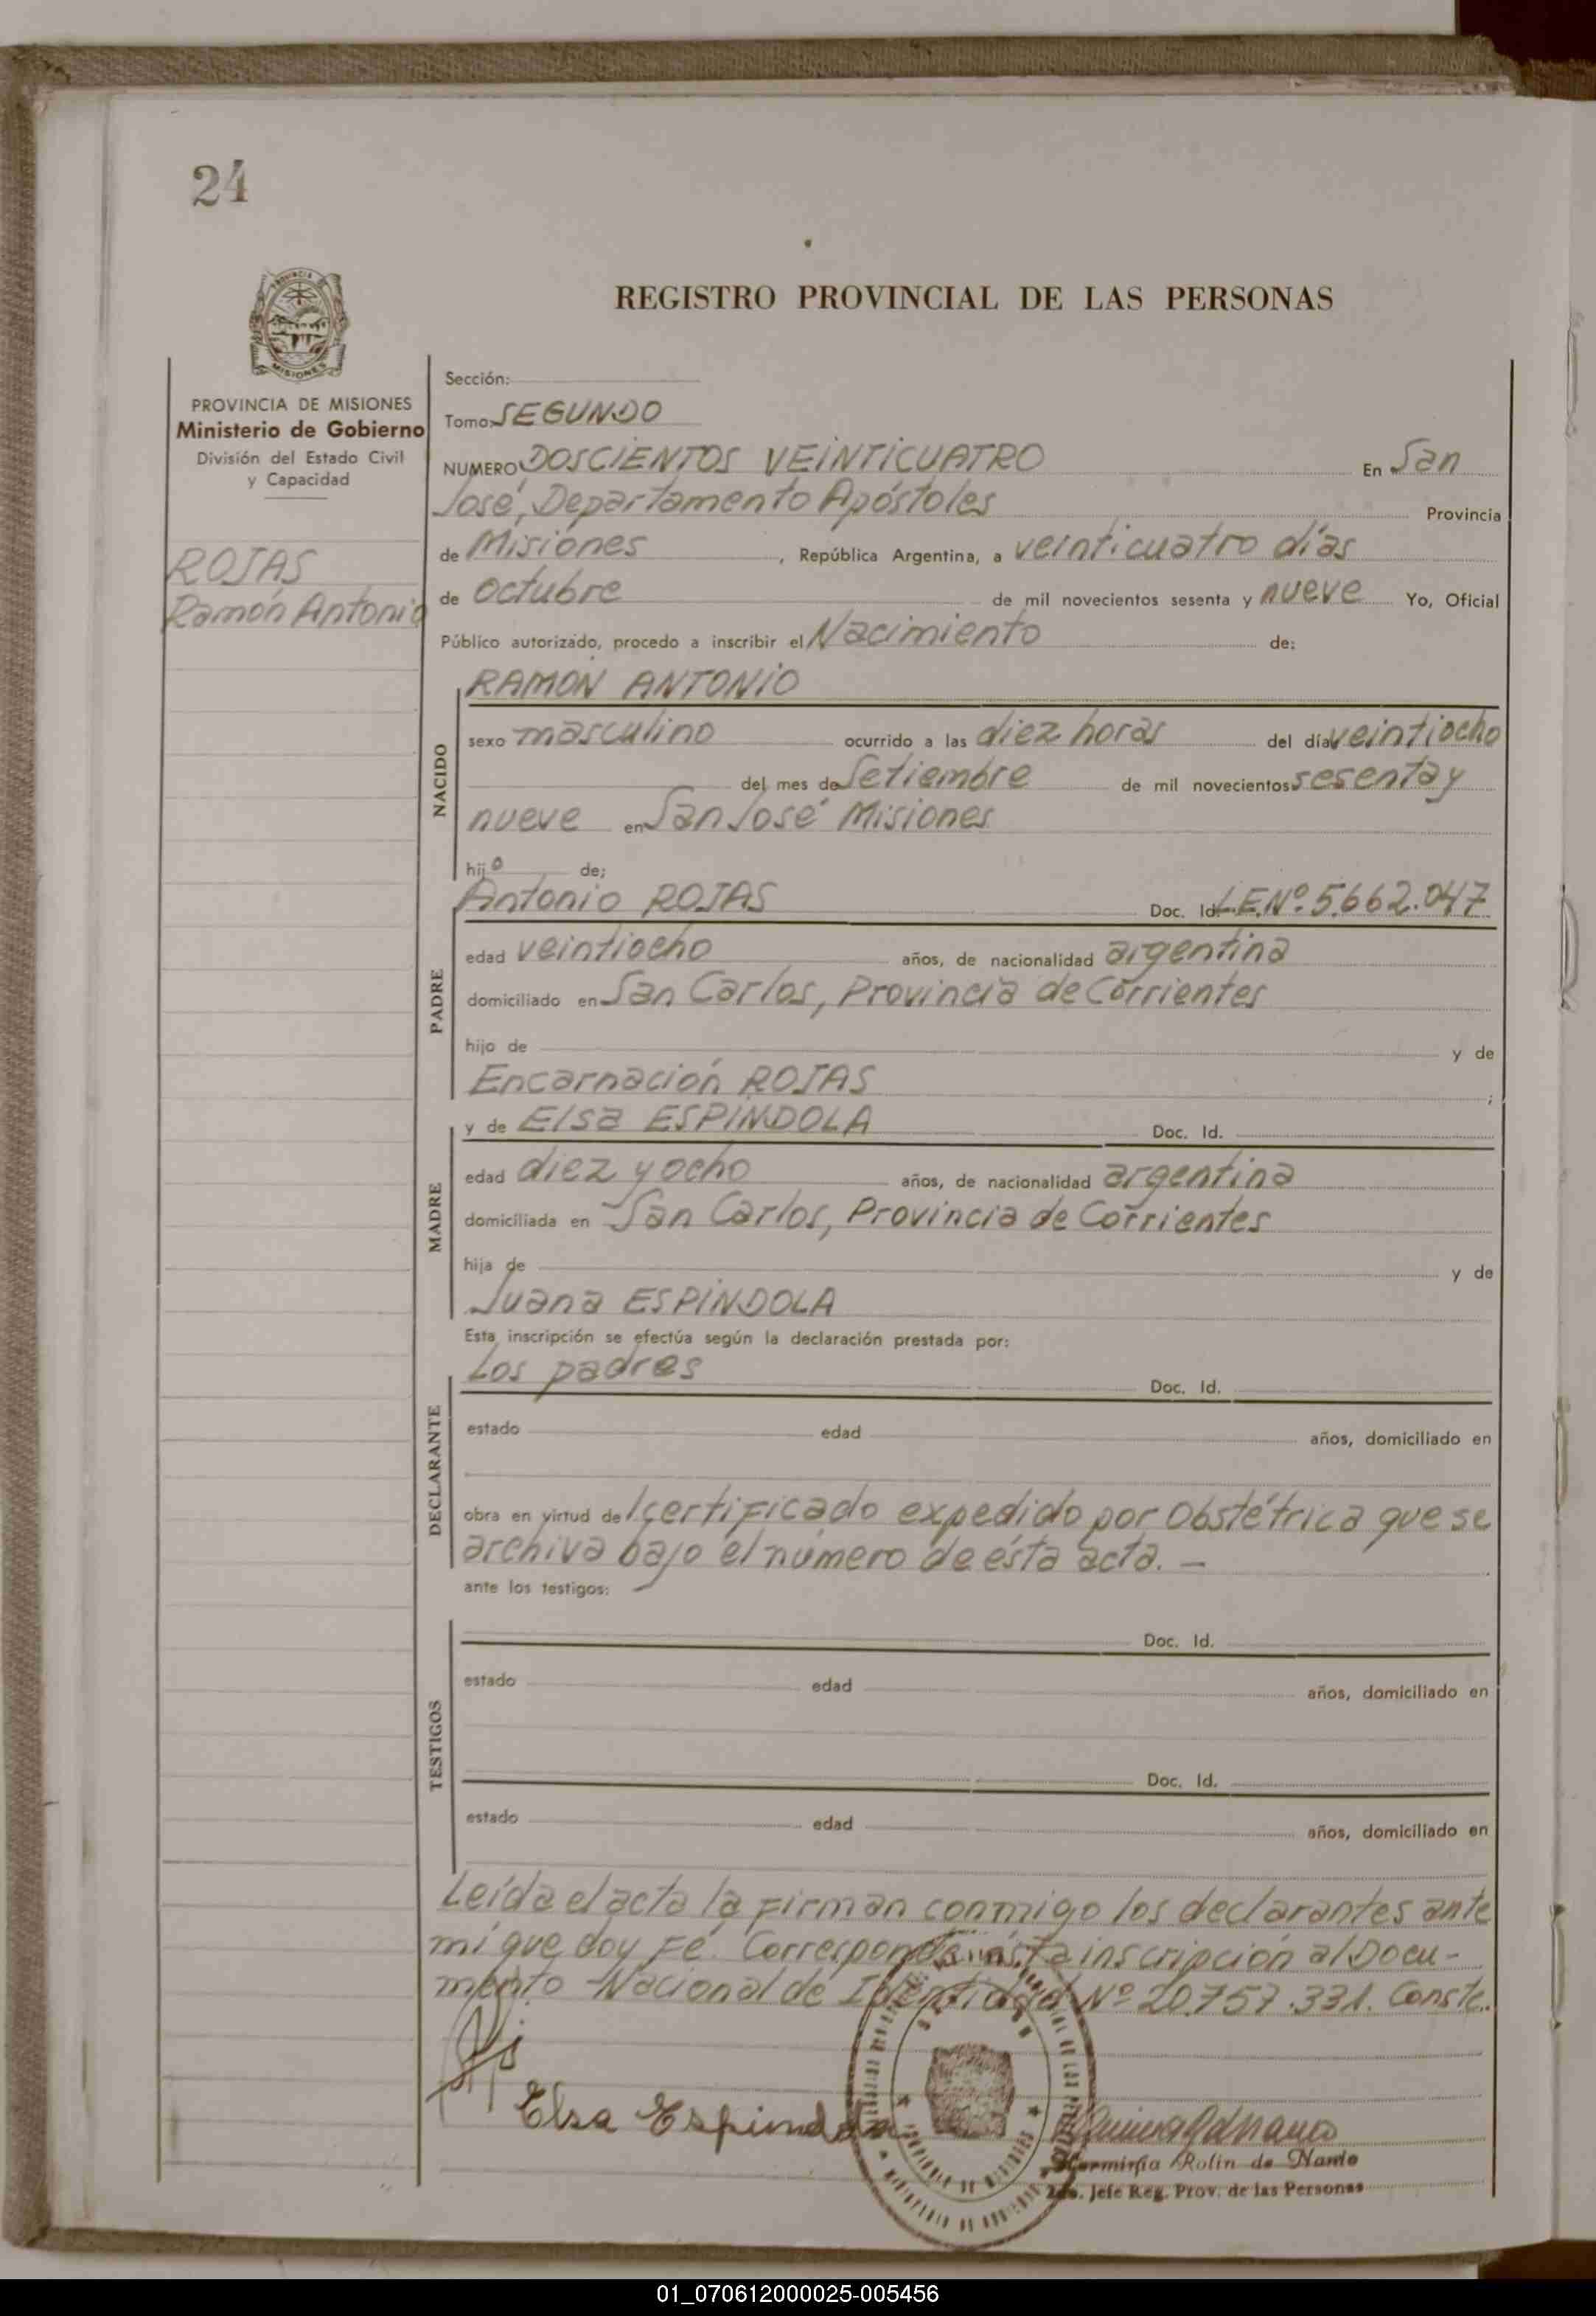 24
REGISTRO PROVINCIAL DE LAS PERSONAS
PROVINCIA DE MISIONES
Ministerio de Gobierno
División del Estado Civil
y Capacidad
ROJAS
Ramón Antonio
Sección:
Tomo: SEGUNDO
NUMERO DOSCIENTOS VEINTICUATRO En San
José, Departamento Apóstoles Provincia
de Misiones, República Argentina, a veinticuatro días
de octubre de mil novecientos sesenta y nueve Yo, Oficial
Público autorizado, procedo a inscribir el Nacimiento de:
NACIDO
RAMÓN ANTONIO
sexo masculino ocurrido a las diez horas del día veintiocho
del mes de Setiembre de mil novecientos sesenta y
nueve en San José Misiones
hijo de;
PADRE
Antonio ROJAS Doc. Id. L.E.Nº. 5.662.047
edad veintiocho años, de nacionalidad argentina
domiciliado en San Carlos, Provincia de Corrientes
hijo de y de
Encarnación ROJAS ;
MADRE
y de Elsa ESPINDOLA Doc. Id.
edad diez y ocho años, de nacionalidad argentina
domiciliada en San Carlos, Provincia de Corrientes
hija de y de
Juana ESPINDOLA
Esta inscripción se efectúa según la declaración prestada por:
DECLARANTE
Los padres Doc. Id.
estado edad años, domiciliado en
obra en virtud del certificado expedido por Obstétrica que se
archiva bajo el número de ésta acta. —
ante los testigos:
TESTIGOS
Doc. Id.
estado edad años, domiciliado en
Doc. Id.
estado edad años, domiciliado en
Leída el acta la firman conmigo los declarantes ante
mí que doy fé. Corresponde ésta inscripción al Docu-
mento Nacional de Identidad Nº 20.757.331. Conste.
Elsa Espindola
Herminia Rolin de Nardo
Jefe Reg. Prov. de las Personas
01_070612000025-005456